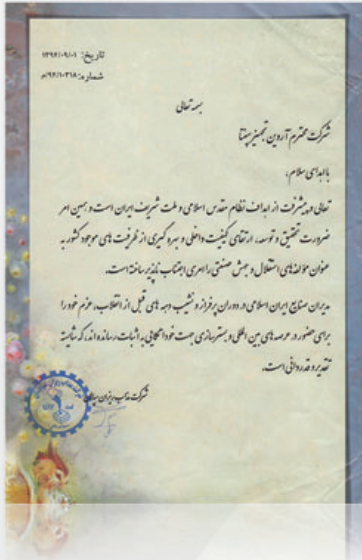 تاریخ: ۱۳۹۶/۰۹/۰۱
شماره: ۹۶/۱۰۳۱۸/م
بسمه تعالی
شرکت محترم آروین تجهیز
با اهدای سلام،
تعالی و پیشرفت از اهداف نظام مقدس اسلامی و ملت شریف ایران است و همین امر
ضرورت تحقیق و توسعه، ارتقای کیفیت داخلی و بهره گیری از ظرفیت های موجود کشور به
عنوان مؤلفه های استقلال و جهش صنعتی را امری اجتناب ناپذیر ساخته است.
مدیران صنایع ایران اسلامی در دوران پرفراز و نشیب دهه های قبل از انقلاب، عزم خود را
برای حضور در عرصه های بین المللی و بسترسازی جهت خوداتکایی به اثبات رسانده اند، که شایسته
تقدیر و قدردانی است.
شرکت مذاب ریزان